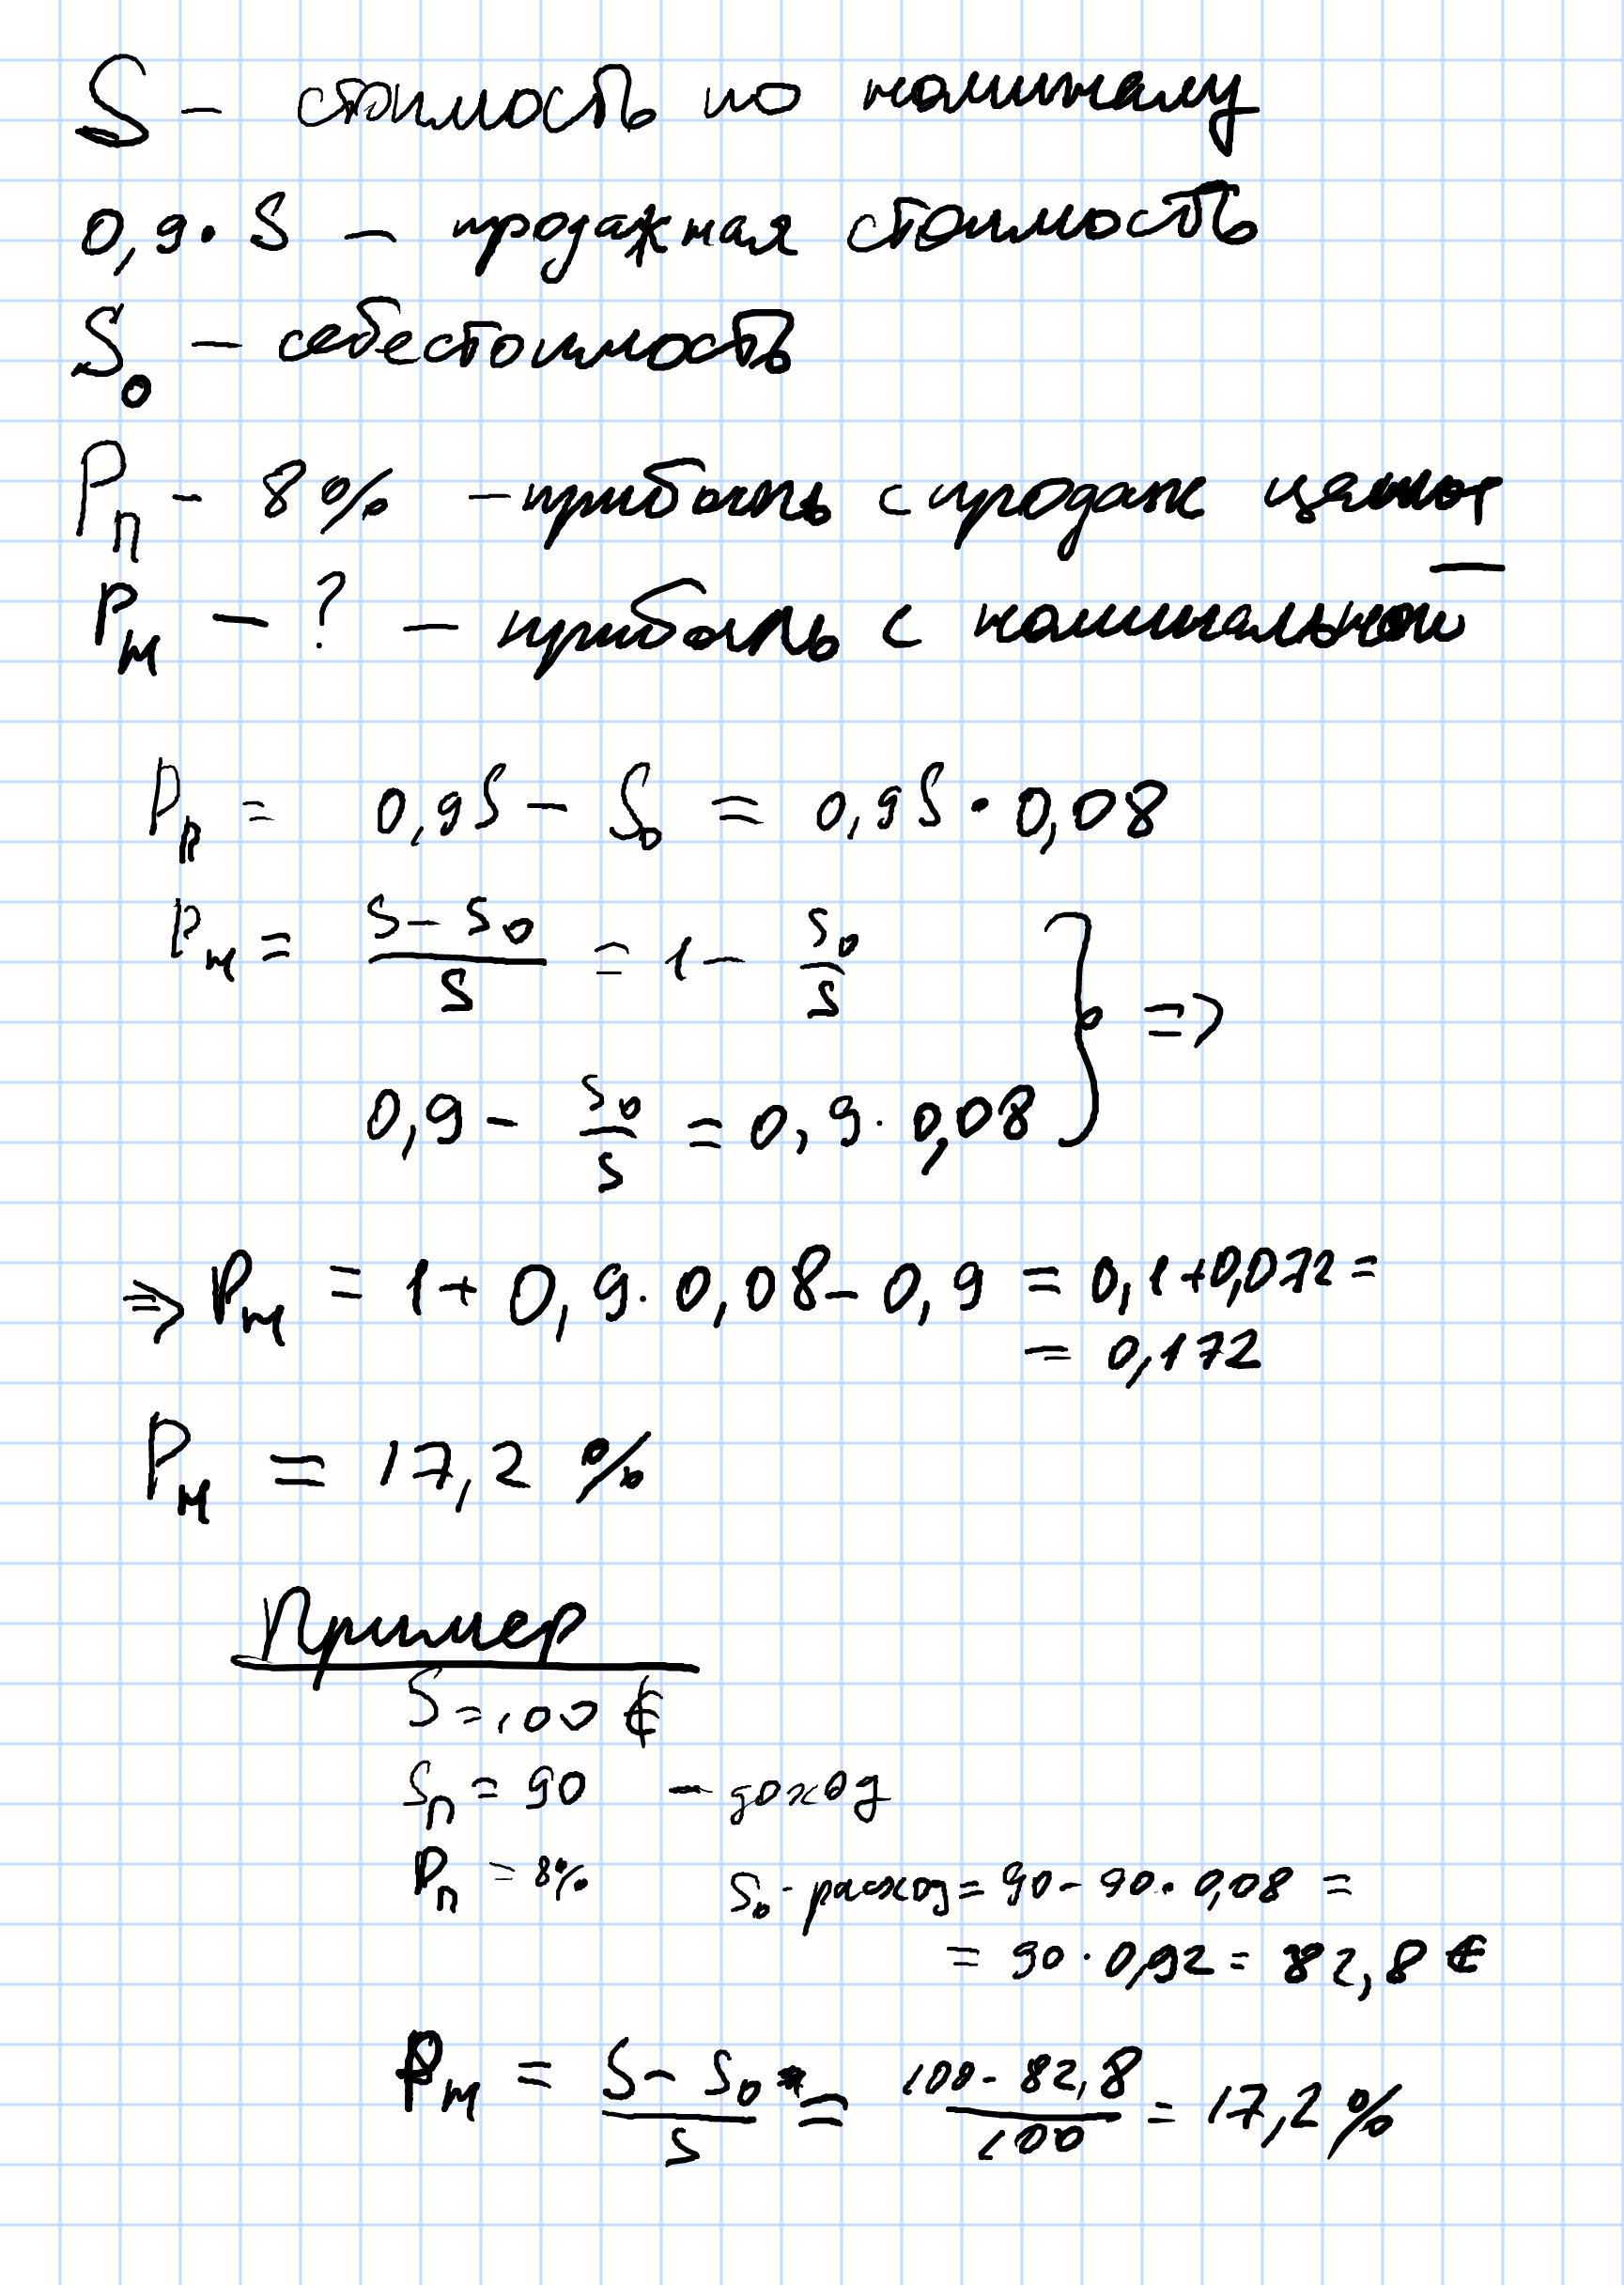 S – стоимость по номиналу
0,9 · S – продажная стоимость
S₀ – себестоимость
Pп - 8% – прибыль с продаж
Pн – ? – прибыль с номинальной
Pп = 0,9S – S₀ = 0,9S · 0,08
Pн = (S – S₀)/S = 1 – S₀/S
0,9 – S₀/S = 0,9 · 0,08 } =>
=> Pн = 1 + 0,9 · 0,08 – 0,9 = 0,1 + 0,072 =
= 0,172
Pн = 17,2 %
Пример
S = 100 €
Sп = 90 – доход
Pп = 8% S₀ - расход = 90 - 90 · 0,08 =
= 90 · 0,92 = 82,8 €
Pн = (S – S₀)/S = (100 - 82,8)/100 = 17,2 %